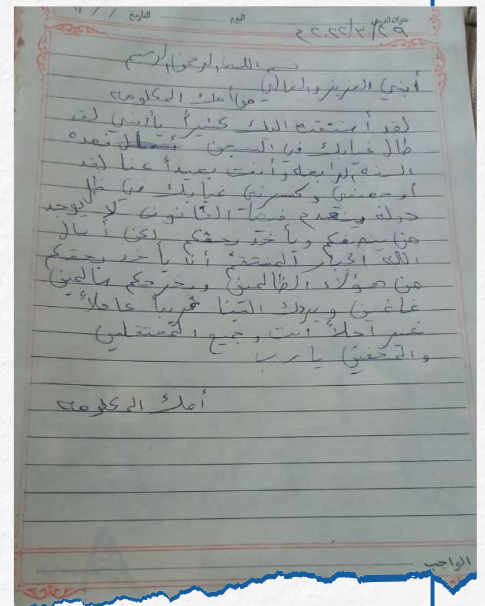 اليوم التاريخ / / ١٤
٢٠٢٢/٣/٢٩ م
بسم الله الرحمن الرحيم
أبني العزيز والغالي
من أمك المكلومه
لقد أشتقت اليك كثيراً يا أبني لقد
طال غيابك في السجن هذه
السنة الرابعة وأنت بعيداً عنا لقد
أوجعتني وكسرتني غيابك في ظل
دولة ينعدم فيها القانون لا يوجد
من ينصفكم ويأخذ بحقكم لكن أسأل
الله الجبار المنتقم أن يأخذ بحقكم
من هؤلاء الظالمين ويخرجكم سالمين
غانمين ويردك الينا قريباً عاجلاً
غير آجلاً أنت وجميع المعتقلين
والمخفين يا رب
أمك المكلومه
الواجب